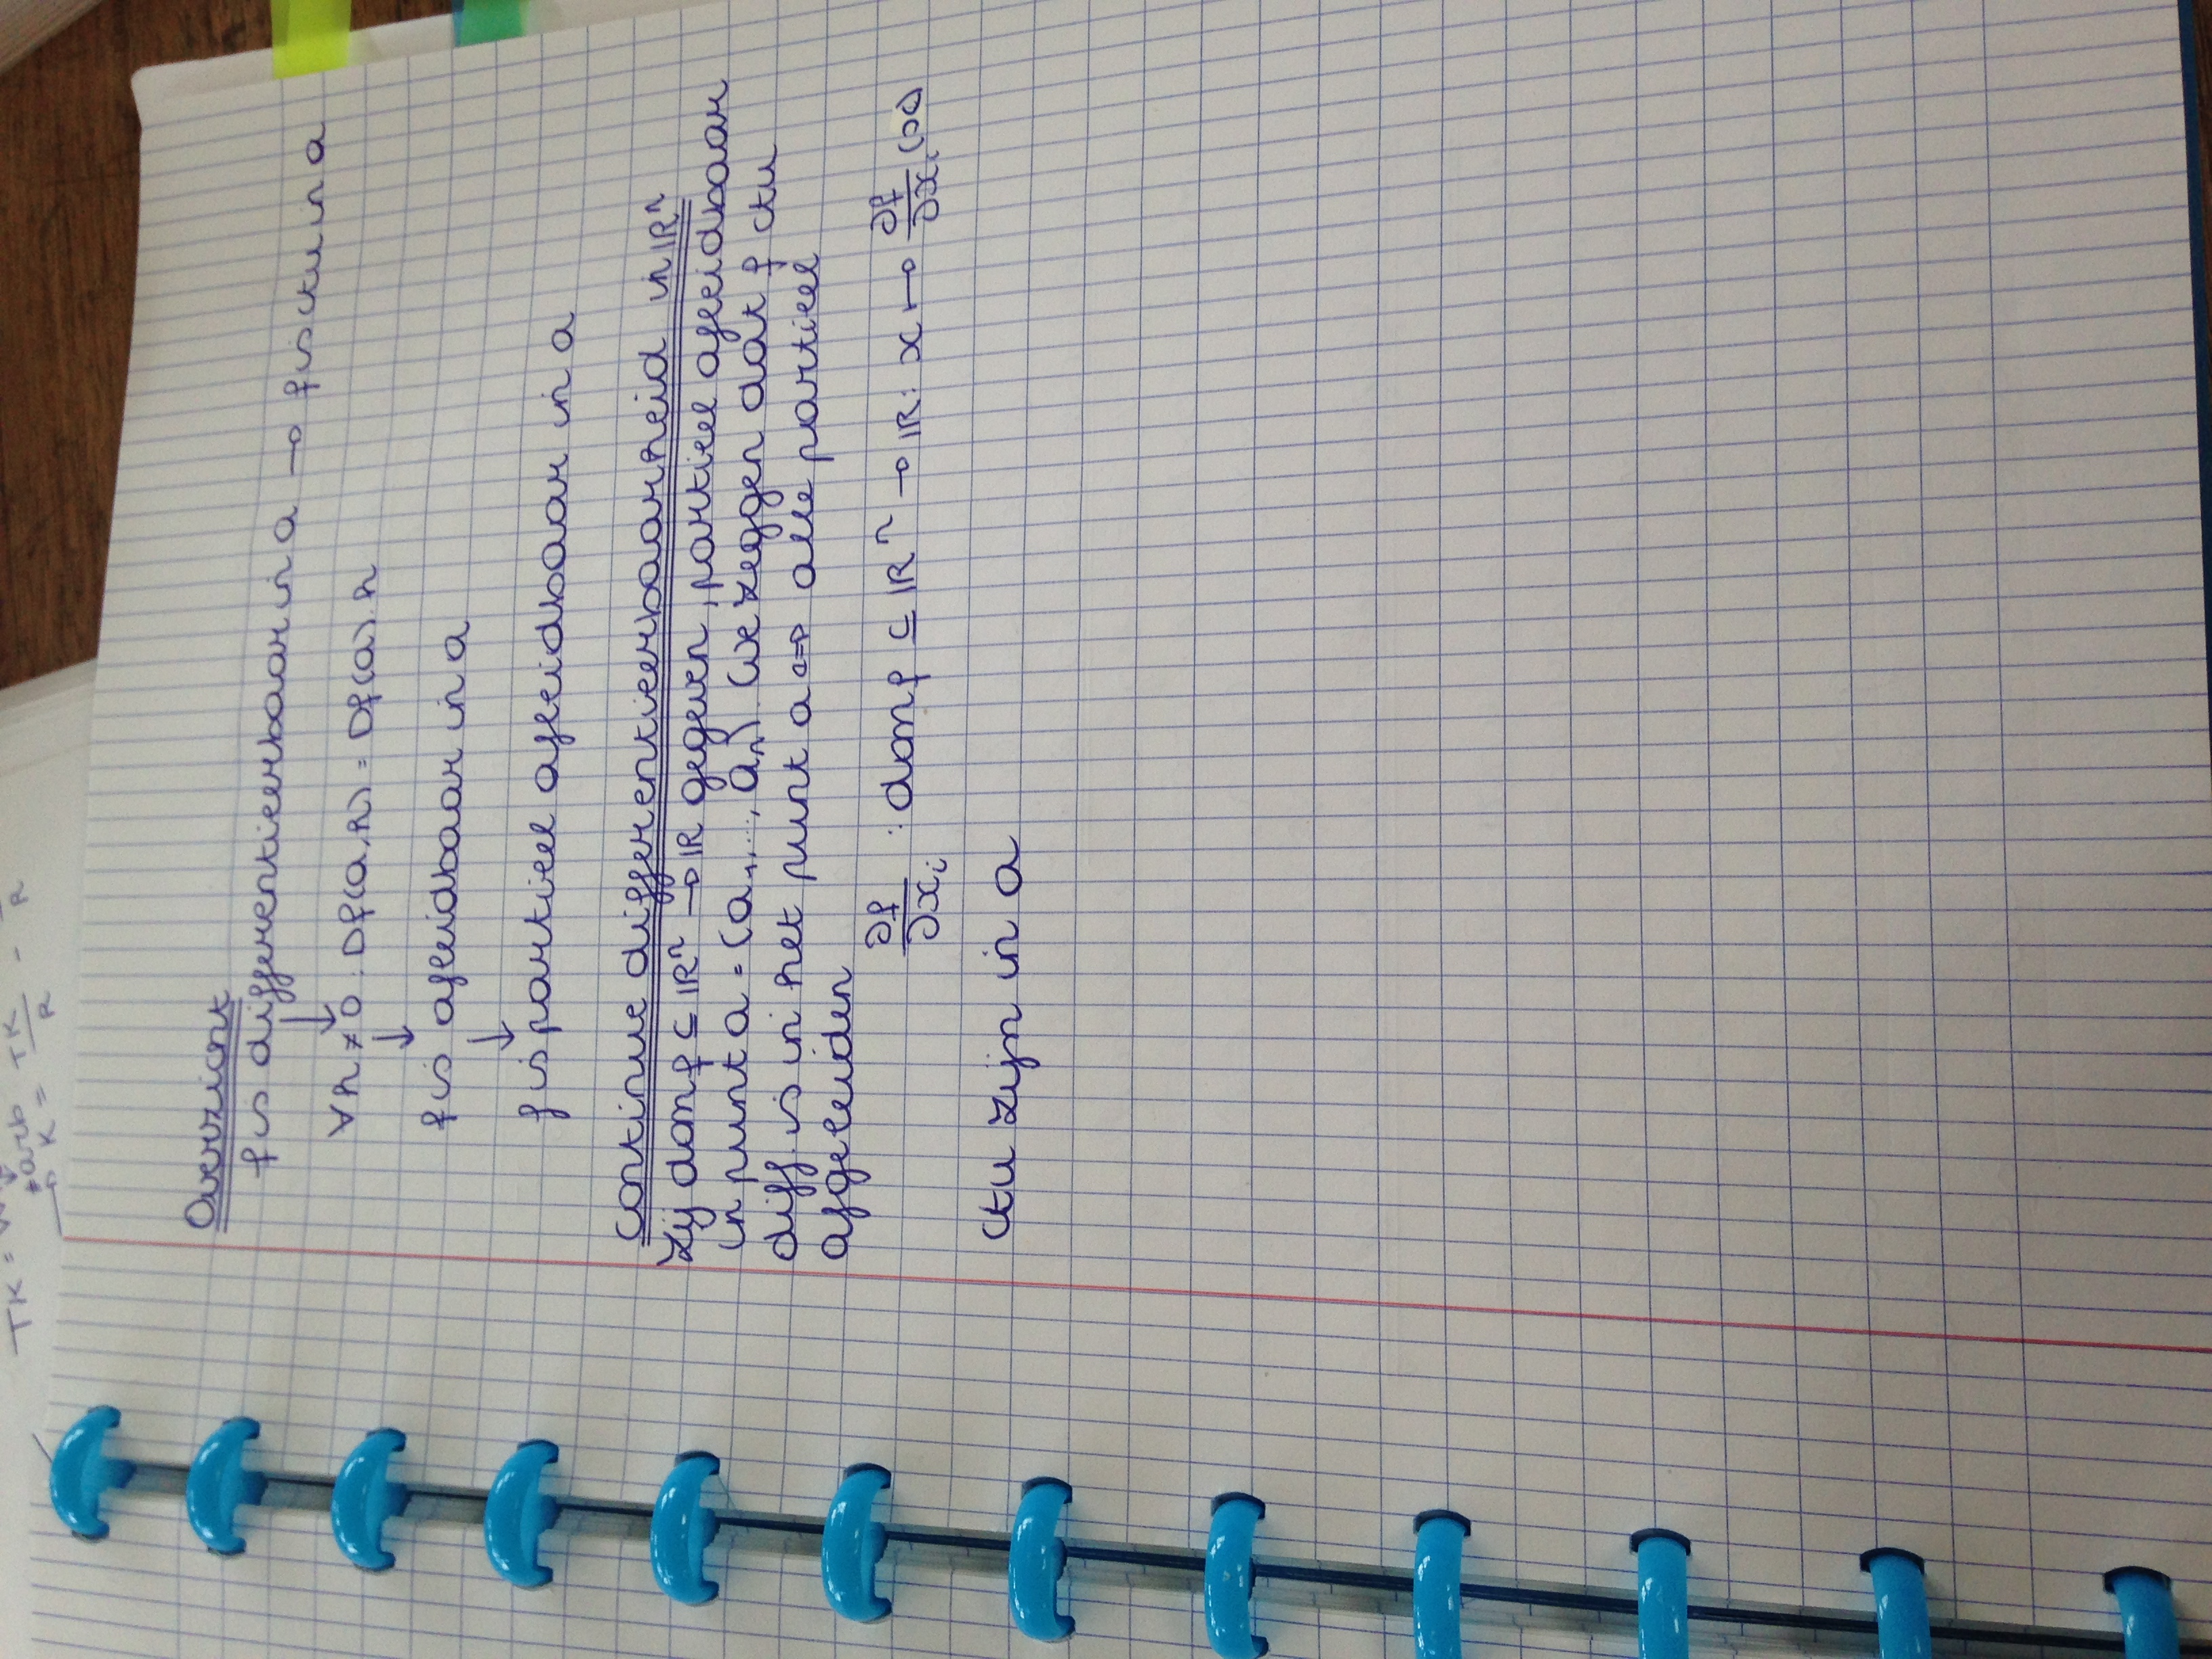 Overzicht
f is differentieerbaar in a → f is ctu in a
↓
∀h ≠ 0 : Df(a,h) = Df(a).h
↓
f is afleidbaar in a
↓
f is partieel afleidbaar in a
Continue differentieerbaarheid in ℝⁿ
Zij dom f ⊆ ℝⁿ → ℝ gegeven, partieel afleidbaar
in punt a = (a₁, ..., aₙ). (We zeggen dat f ctu
diff. is in het punt a ⇔ alle partieel
afgeleiden
∂f/∂xᵢ : dom f ⊆ ℝⁿ → ℝ : x ↦ ∂f/∂xᵢ (x)
ctu zijn in a
TK =
TK/R
K =